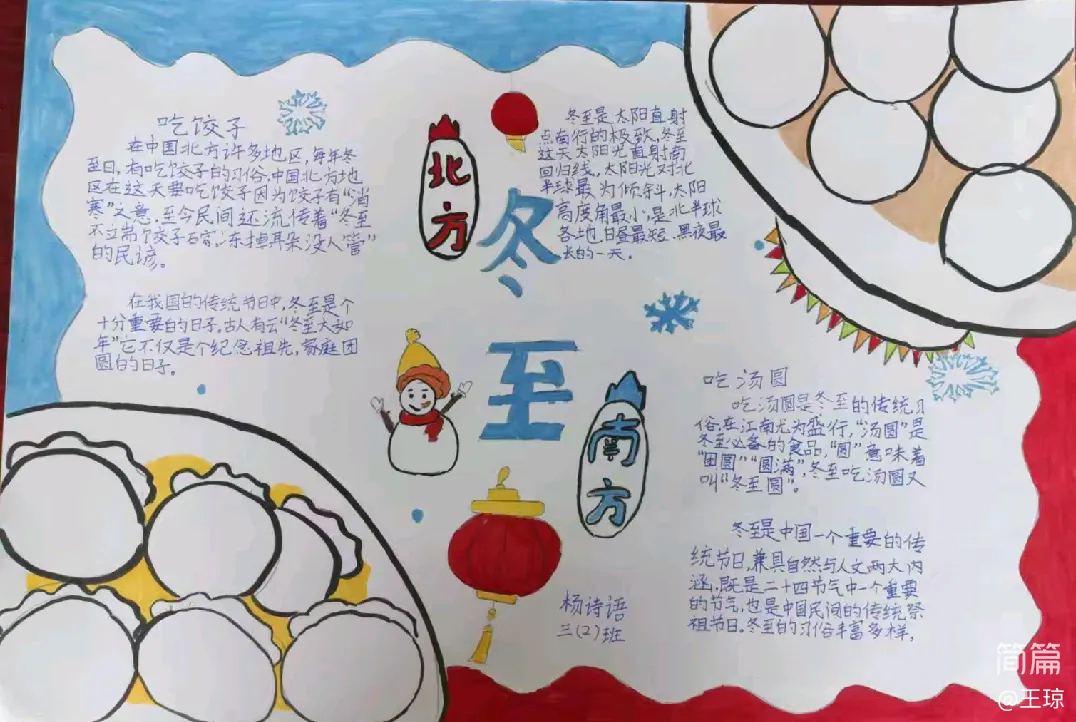 吃饺子
在中国北方许多地区,每年冬
至日,有吃饺子的习俗,中国北方地
区在这天要吃饺子因为饺子有“消
寒”之意,至今民间还流传着“冬至
不端饺子碗,冻掉耳朵没人管”
的民谚。
在我国的传统节日中,冬至是个
十分重要的日子,古人有云“冬至大如
年”它不仅是个纪念祖先,家庭团
圆的日子。
北方
冬至
南方
冬至是太阳直射
点南行的极致,冬至
这天太阳光直射南
回归线,太阳光对北
半球最为倾斜,太阳
高度角最小,是北半球
各地白昼最短、黑夜最
长的一天。
吃汤圆
吃汤圆是冬至的传统习
俗,在江南尤为盛行,“汤圆”是
冬至必备的食品,“圆”意味着
“团圆”“圆满”,冬至吃汤圆又
叫“冬至圆”。
冬至是中国一个重要的传
统节日,兼具自然与人文两大内
涵,既是二十四节气中一个重要
的节气,也是中国民间的传统祭
祖节日。冬至的习俗丰富多样,
杨诗语
三(2)班
简篇
@王琼